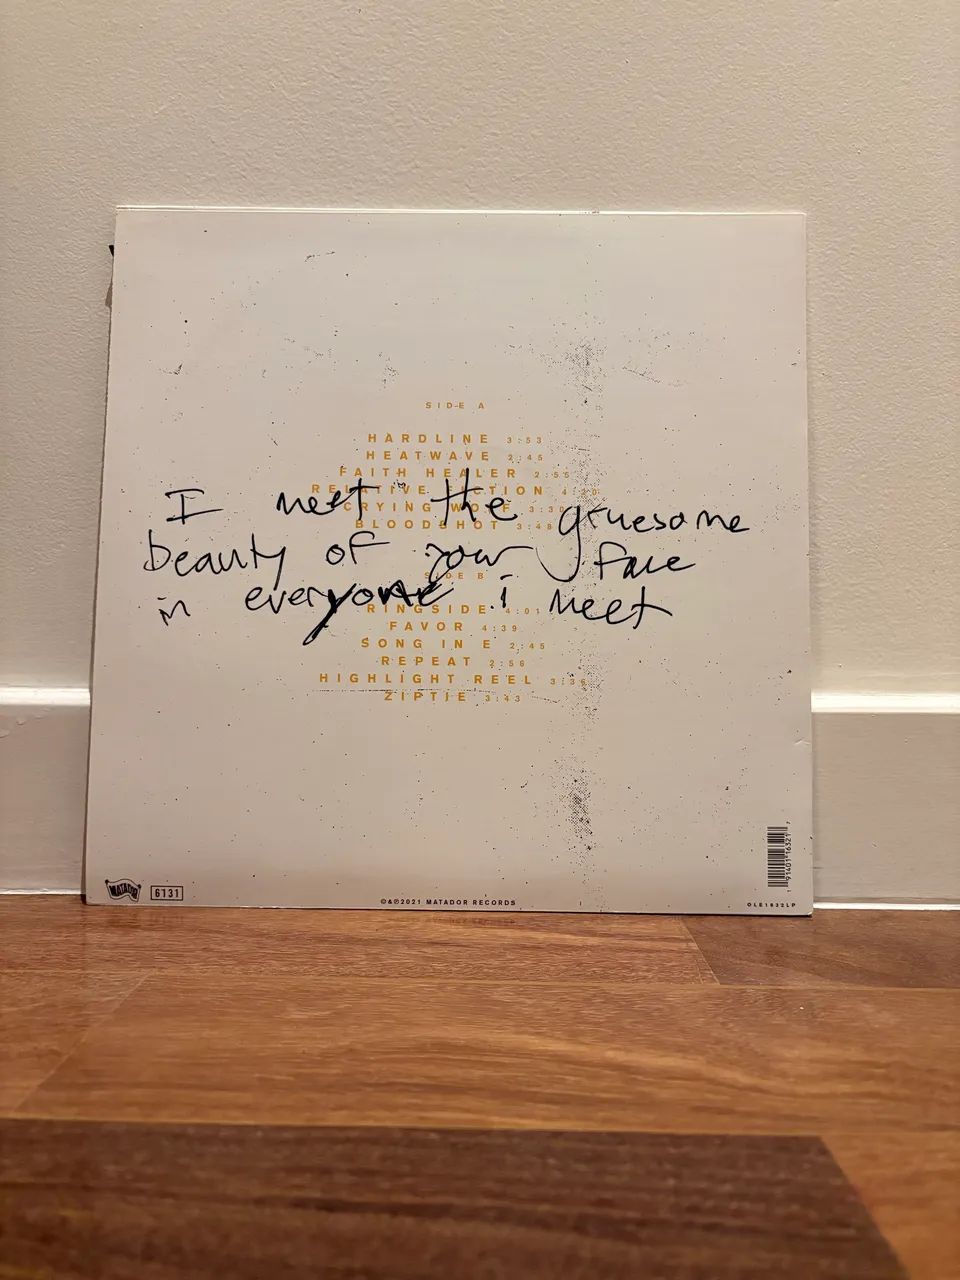 SIDE A
HARDLINE 3:53
HEATWAVE 2:45
FAITH HEALER 2:55
RELATIVE FICTION 4:20
CRYING WOLF 3:30
BLOODSHOT 3:48
I meet the gruesome
beauty of your face
in everyone i meet
SIDE B
RINGSIDE 4:01
FAVOR 4:39
SONG IN E 2:45
REPEAT 2:56
HIGHLIGHT REEL 3:36
ZIPTIE 3:43
MATADOR
6131
©&℗2021 MATADOR RECORDS
OLE1632LP